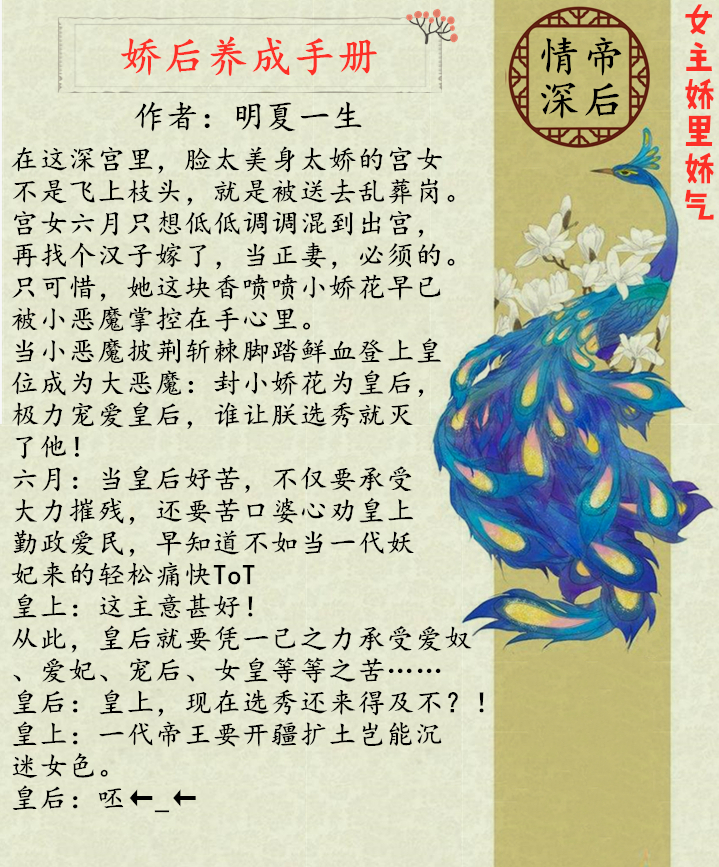 娇后养成手册
作者：明夏一生
在这深宫里，脸太美身太娇的宫女
不是飞上枝头，就是被送去乱葬岗。
宫女六月只想低低调调混到出宫，
再找个汉子嫁了，当正妻，必须的。
只可惜，她这块香喷喷小娇花早已
被小恶魔掌控在手心里。
当小恶魔披荆斩棘脚踏鲜血登上皇
位成为大恶魔：封小娇花为皇后，
极力宠爱皇后，谁让朕选秀就灭
了他！
六月：当皇后好苦，不仅要承受
大力摧残，还要苦口婆心劝皇上
勤政爱民，早知道不如当一代妖
妃来的轻松痛快ToT
皇上：这主意甚好！
从此，皇后就要凭一己之力承受爱奴
、爱妃、宠后、女皇等等之苦……
皇后：皇上，现在选秀还来得及不？！
皇上：一代帝王要开疆扩土岂能沉
迷女色。
皇后：呸←_←
帝后
情深
女主娇里娇气